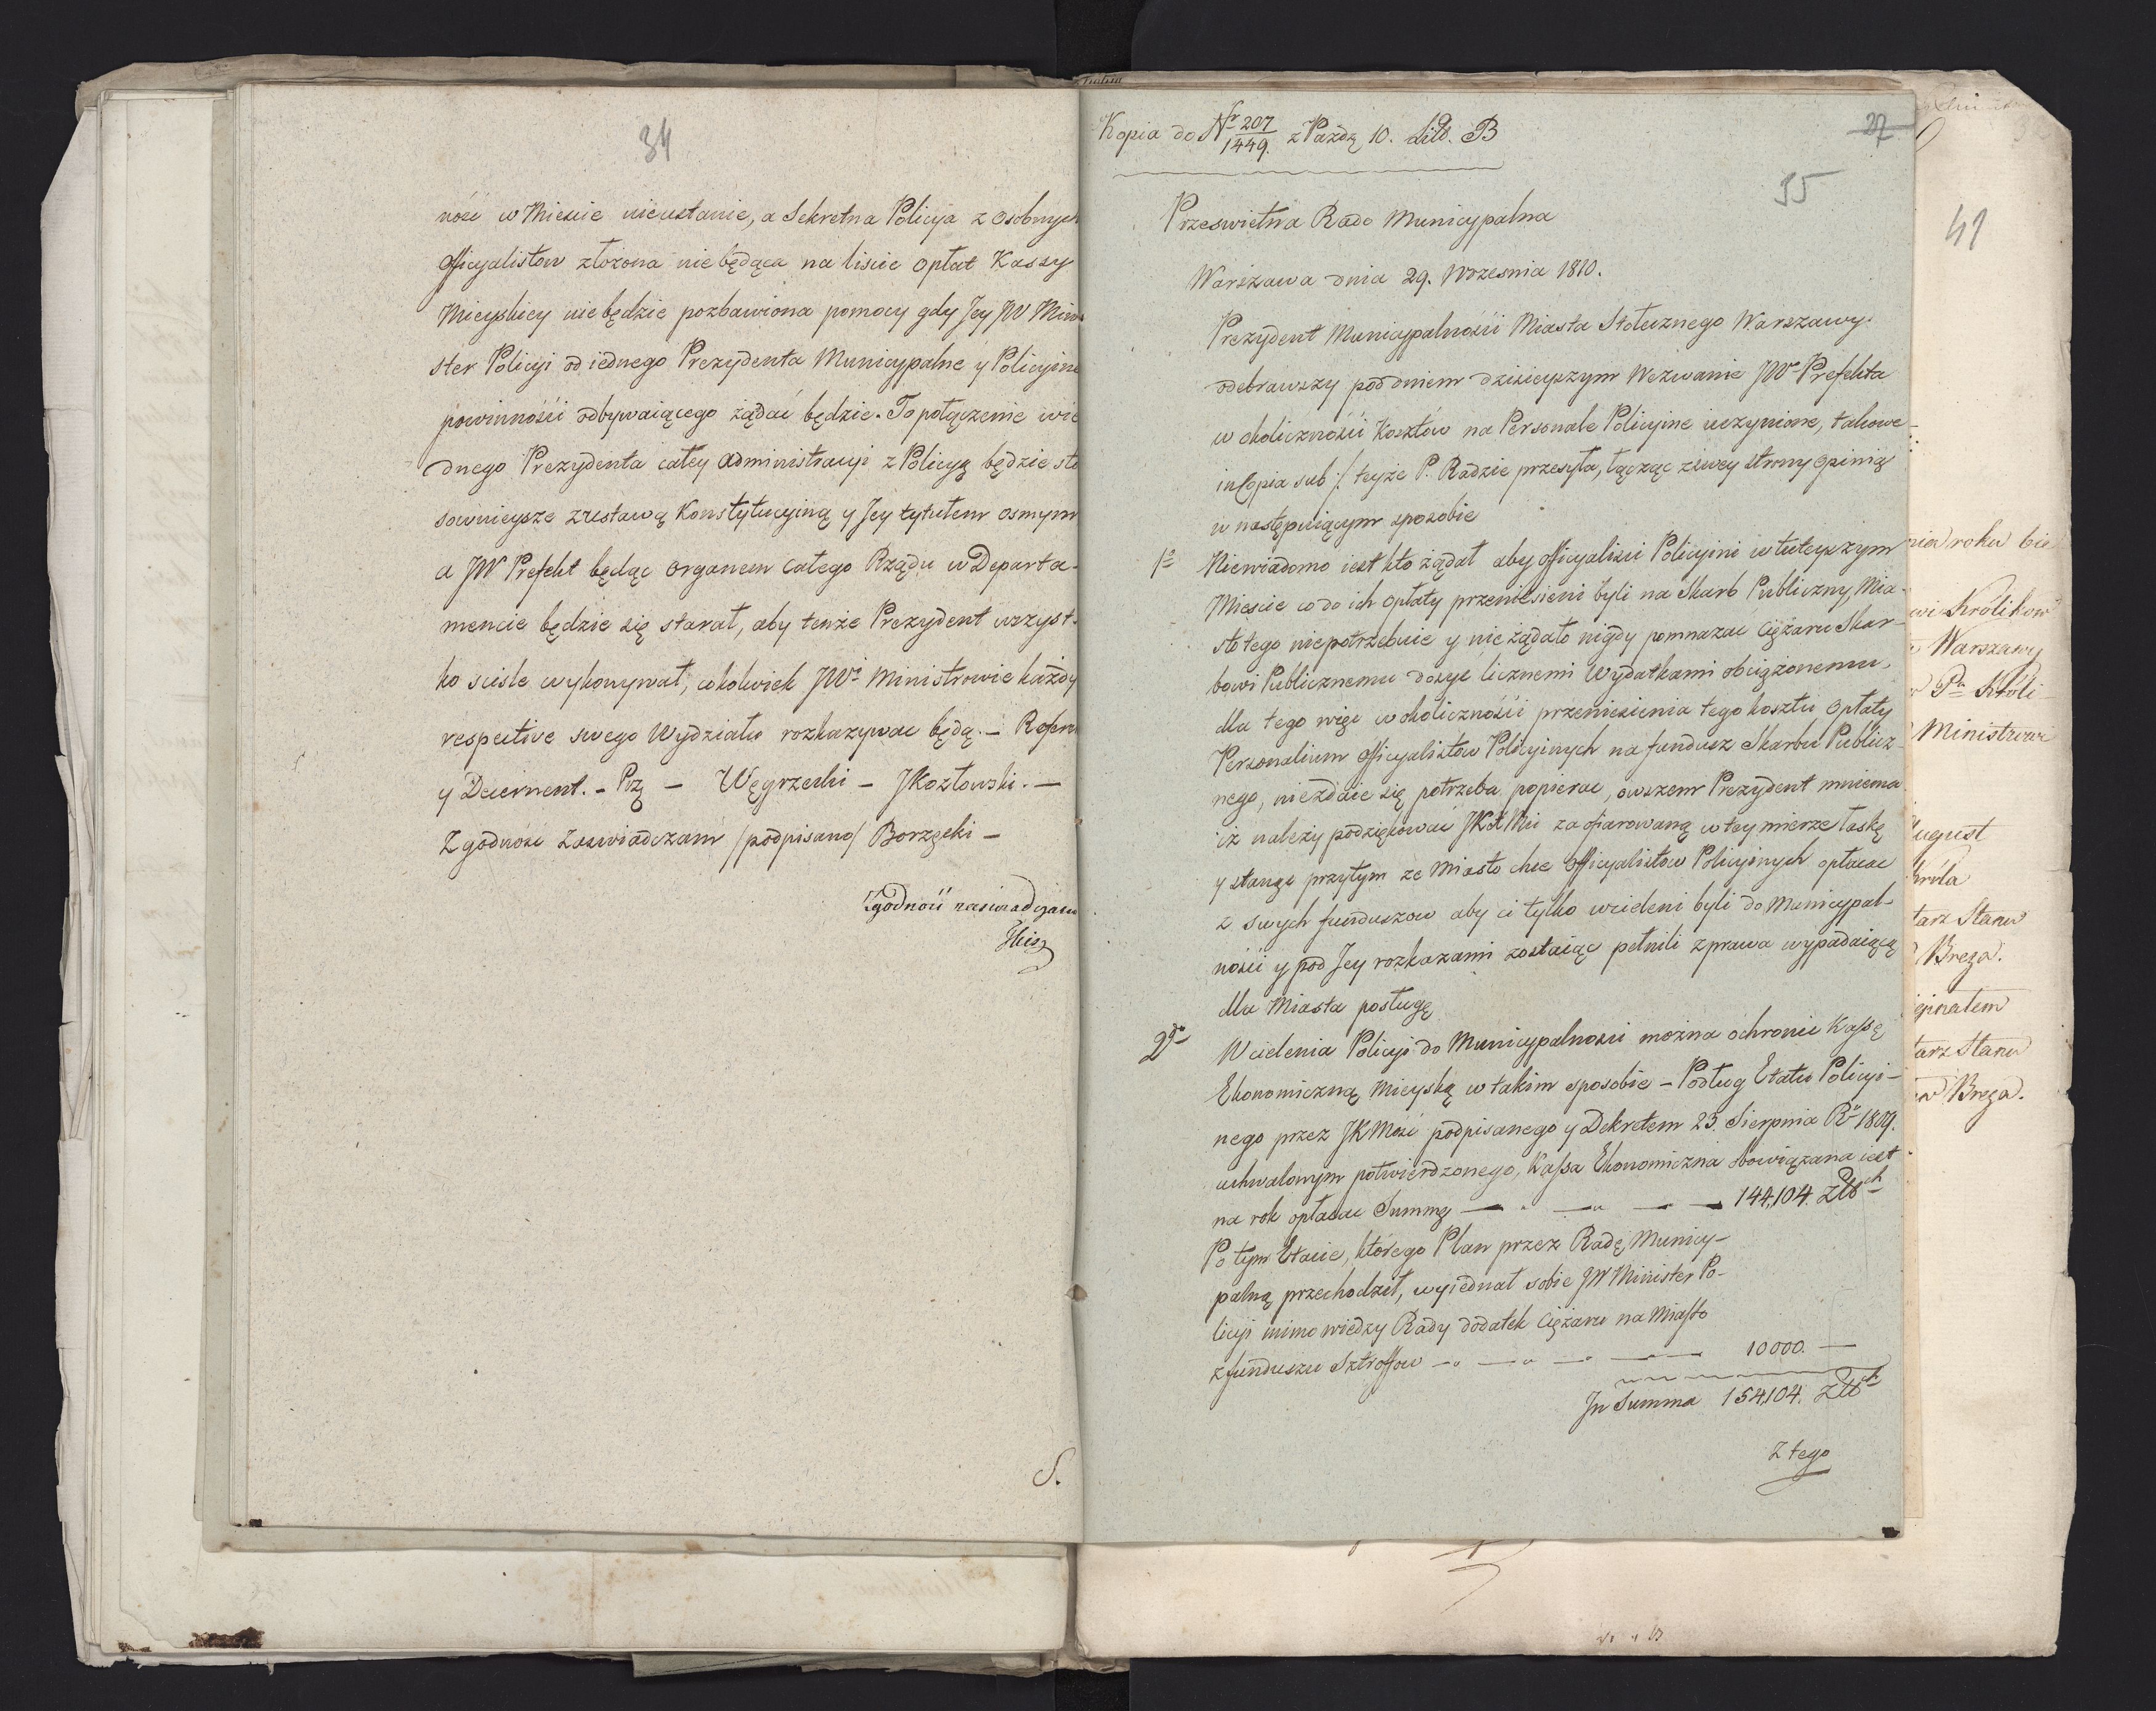 34
ność w Mieście nieustanie, a Sekretna Policyja z osobnych
officyalistow złożona nie będąca na liście opłat Kassy
Mieyskiey nie będzie pozbawiona pomocy gdy Jey JW Mini
ster Policyi od iednego Prezydenta Municypalne y Policyine
powinności odbywaiącego żądać będzie. To połączenie wie
dnego Prezydenta całey administracyi z Policyą będzie sto
sownieysze z ustawą Konstytucyiną y Jey tytułem osmym
a JW Prefekt będąc organem całego Rządu w Departa-
mencie będzie się starał, aby tenże Prezydent wszyst-
ko scisle wykonywał, cokolwiek JWi Ministrowie każdy
respective swego Wydziału rozkazywac będą. – Refern
y Decernent. – Prz – Węgrzecki – JKozłowski. –
Zgodnosc Zaswiadczam /podpisano/ Borzęcki –
Zgodność zaświadczam
S.
Kopia do Nr 207/1449. z Paźdz 10. Litt. B
27
35
Prześwietna Rado Municypalna
Warszawa dnia 29. Wrzesnia 1810.
Prezydent Municypalności Miasta Stołecznego Warszawy.
odebrawszy pod dniem dzisieyszym Wezwanie JW Prefekta
w okoliczności Kosztów na Personale Policyine uczynione, takowe
in Copia sub ./. teyże P. Radzie przesyła, łącząc z swey strony opinią
w następuiącym sposobie
1o Niewiadomo iest kto żądał aby officyalisci Policyini w tuteyszym
Mieście co do ich opłaty przeniesieni byli na Skarb Publiczny, Mia-
sto tego niepotrzebuie y nie żądało nigdy pomnazac ciężaru Skar-
bowi Publicznemu dosyć licznemi Wydatkami obciążonemu,
dla tego więc w okoliczności przeniesienia tego kosztu opłaty
Personalium officyalistów Policyinych na fundusz Skarbu Publicz-
nego, niezdaie się potrzeba popierac, owszem Prezydent mniema
iż należy podziękowac JKMci za ofiarowaną w tey mierze łaskę
y stanąc przytym ze Miasto chce officyalistow Policyinych opłacac
z swych funduszow aby ci tylko wcieleni byli do Municypal-
ności y pod Jey rozkazami zostaiąc pełnili z prawa wypadaiącą
dla Miasta posługę
2do Wcielenia Policyi do Municypalności można ochronic Kassę
Ekonomiczną Mieyską w takim sposobie – Podług Etatu Policyi-
nego przez JKMość podpisanego y Dekretem 23. Sierpnia Ru 1809.
uchwalonym potwierdzonego, Kassa Ekonomiczna obowiązana iest
na rok opłacac Summę — — — — 144,104. Złłch
Po tym Etacie, którego Plan przez Radę Municy-
palną przechodził, wyiednał sobie JW Minister Po-
licyi mimo wiedzy Rady dodatek ciężaru na Miasto
z funduszu Sztroffow — — — — 10000. —
In Summa 154,104. Złłch
Z tego
41
nia roku bie
wi Królikow
Warszawy
Pa Króli-
Ministrow
August
Króla
tarz Stanu
Breza.
ginałem
tarz Stanu
Breza.